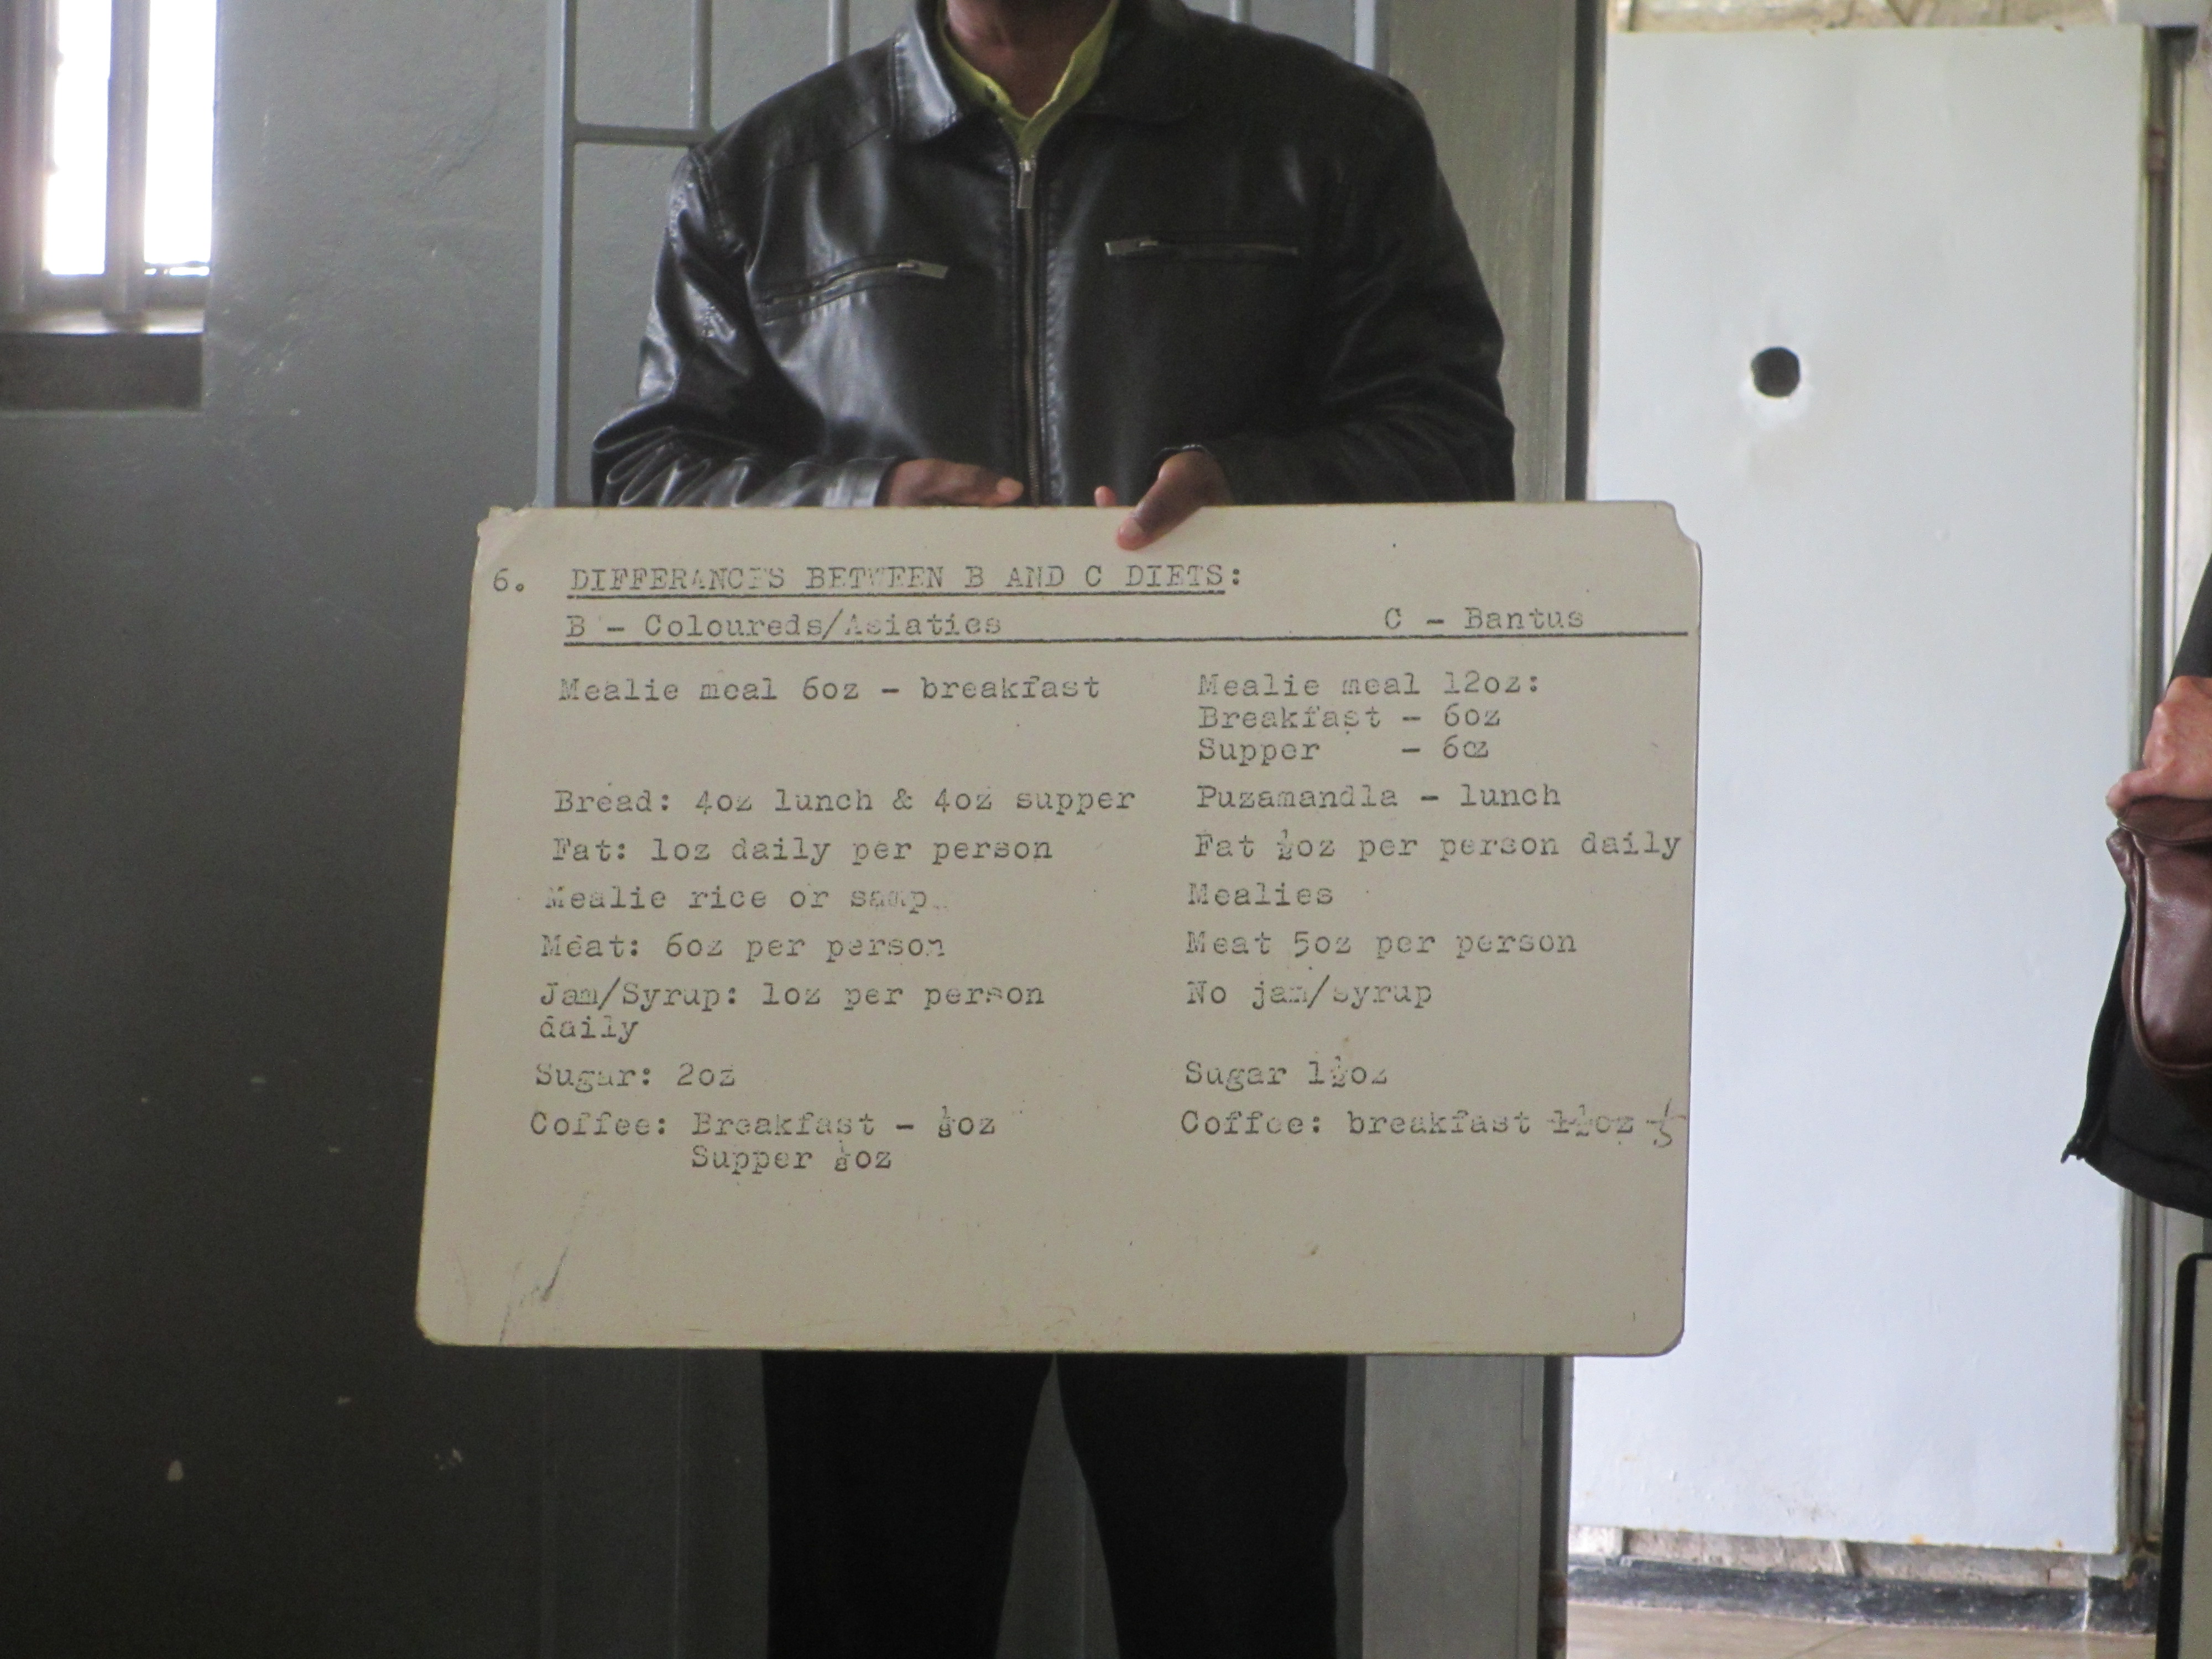 6. DIFFERANCES BETWEEN B AND C DIETS:
B - Coloureds/Asiatics C - Bantus
Mealie meal 6oz - breakfast Mealie meal 12oz:
Breakfast - 6oz
Supper - 6oz
Bread: 4oz lunch & 4oz supper Puzamandla - lunch
Fat: 1oz daily per person Fat ½oz per person daily
Mealie rice or samp Mealies
Meat: 6oz per person Meat 5oz per person
Jam/Syrup: 1oz per person No jam/syrup
daily
Sugar: 2oz Sugar 1½oz
Coffee: Breakfast - ⅛oz Coffee: breakfast 1½oz
Supper ⅛oz